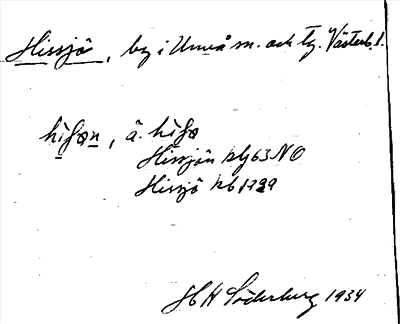 Hissjö, by i Umeå sn. och tg. Västerb. l.
hìʃøn, ä. hìʃø
Hissjön klj 63 NO
Hissjö kb 1929
H Söderberg 1934